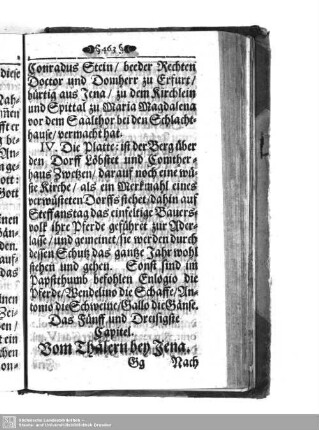 463
Conradus Stein/ beeder Rechten
Doctor und Domherr zu Erfurt/
bürtig aus Jena/ zu dem Kirchlein
und Spittal zu Maria Magdalena
vor dem Saalthor bei den Schlacht-
hause/ vermacht hat.
IV. Die Platte: ist der Berg über
den Dorff Löbstet und Comther-
haus Zwetzen/ darauf noch eine wü-
ste Kirche/ als ein Merkmahl eines
verwüsteten Dorffs stehet/ dahin auf
Steffanstag das einfeltige Bauers-
volk ihre Pferde geführet zur Ader-
lasse/ und gemeinet/ sie werden durch
dessen Schutz das gantze Jahr wohl
stehen und gehen. Sonst sind im
Papstthumb befohlen Eulogio die
Pferde/ Wendelino die Schaffe/ An-
tonio die Schweine/ Gallo die Gänse.
Das Fünff und Dreisigste
Capitel.
Vom Thälern bey Jena.
Gg Nach